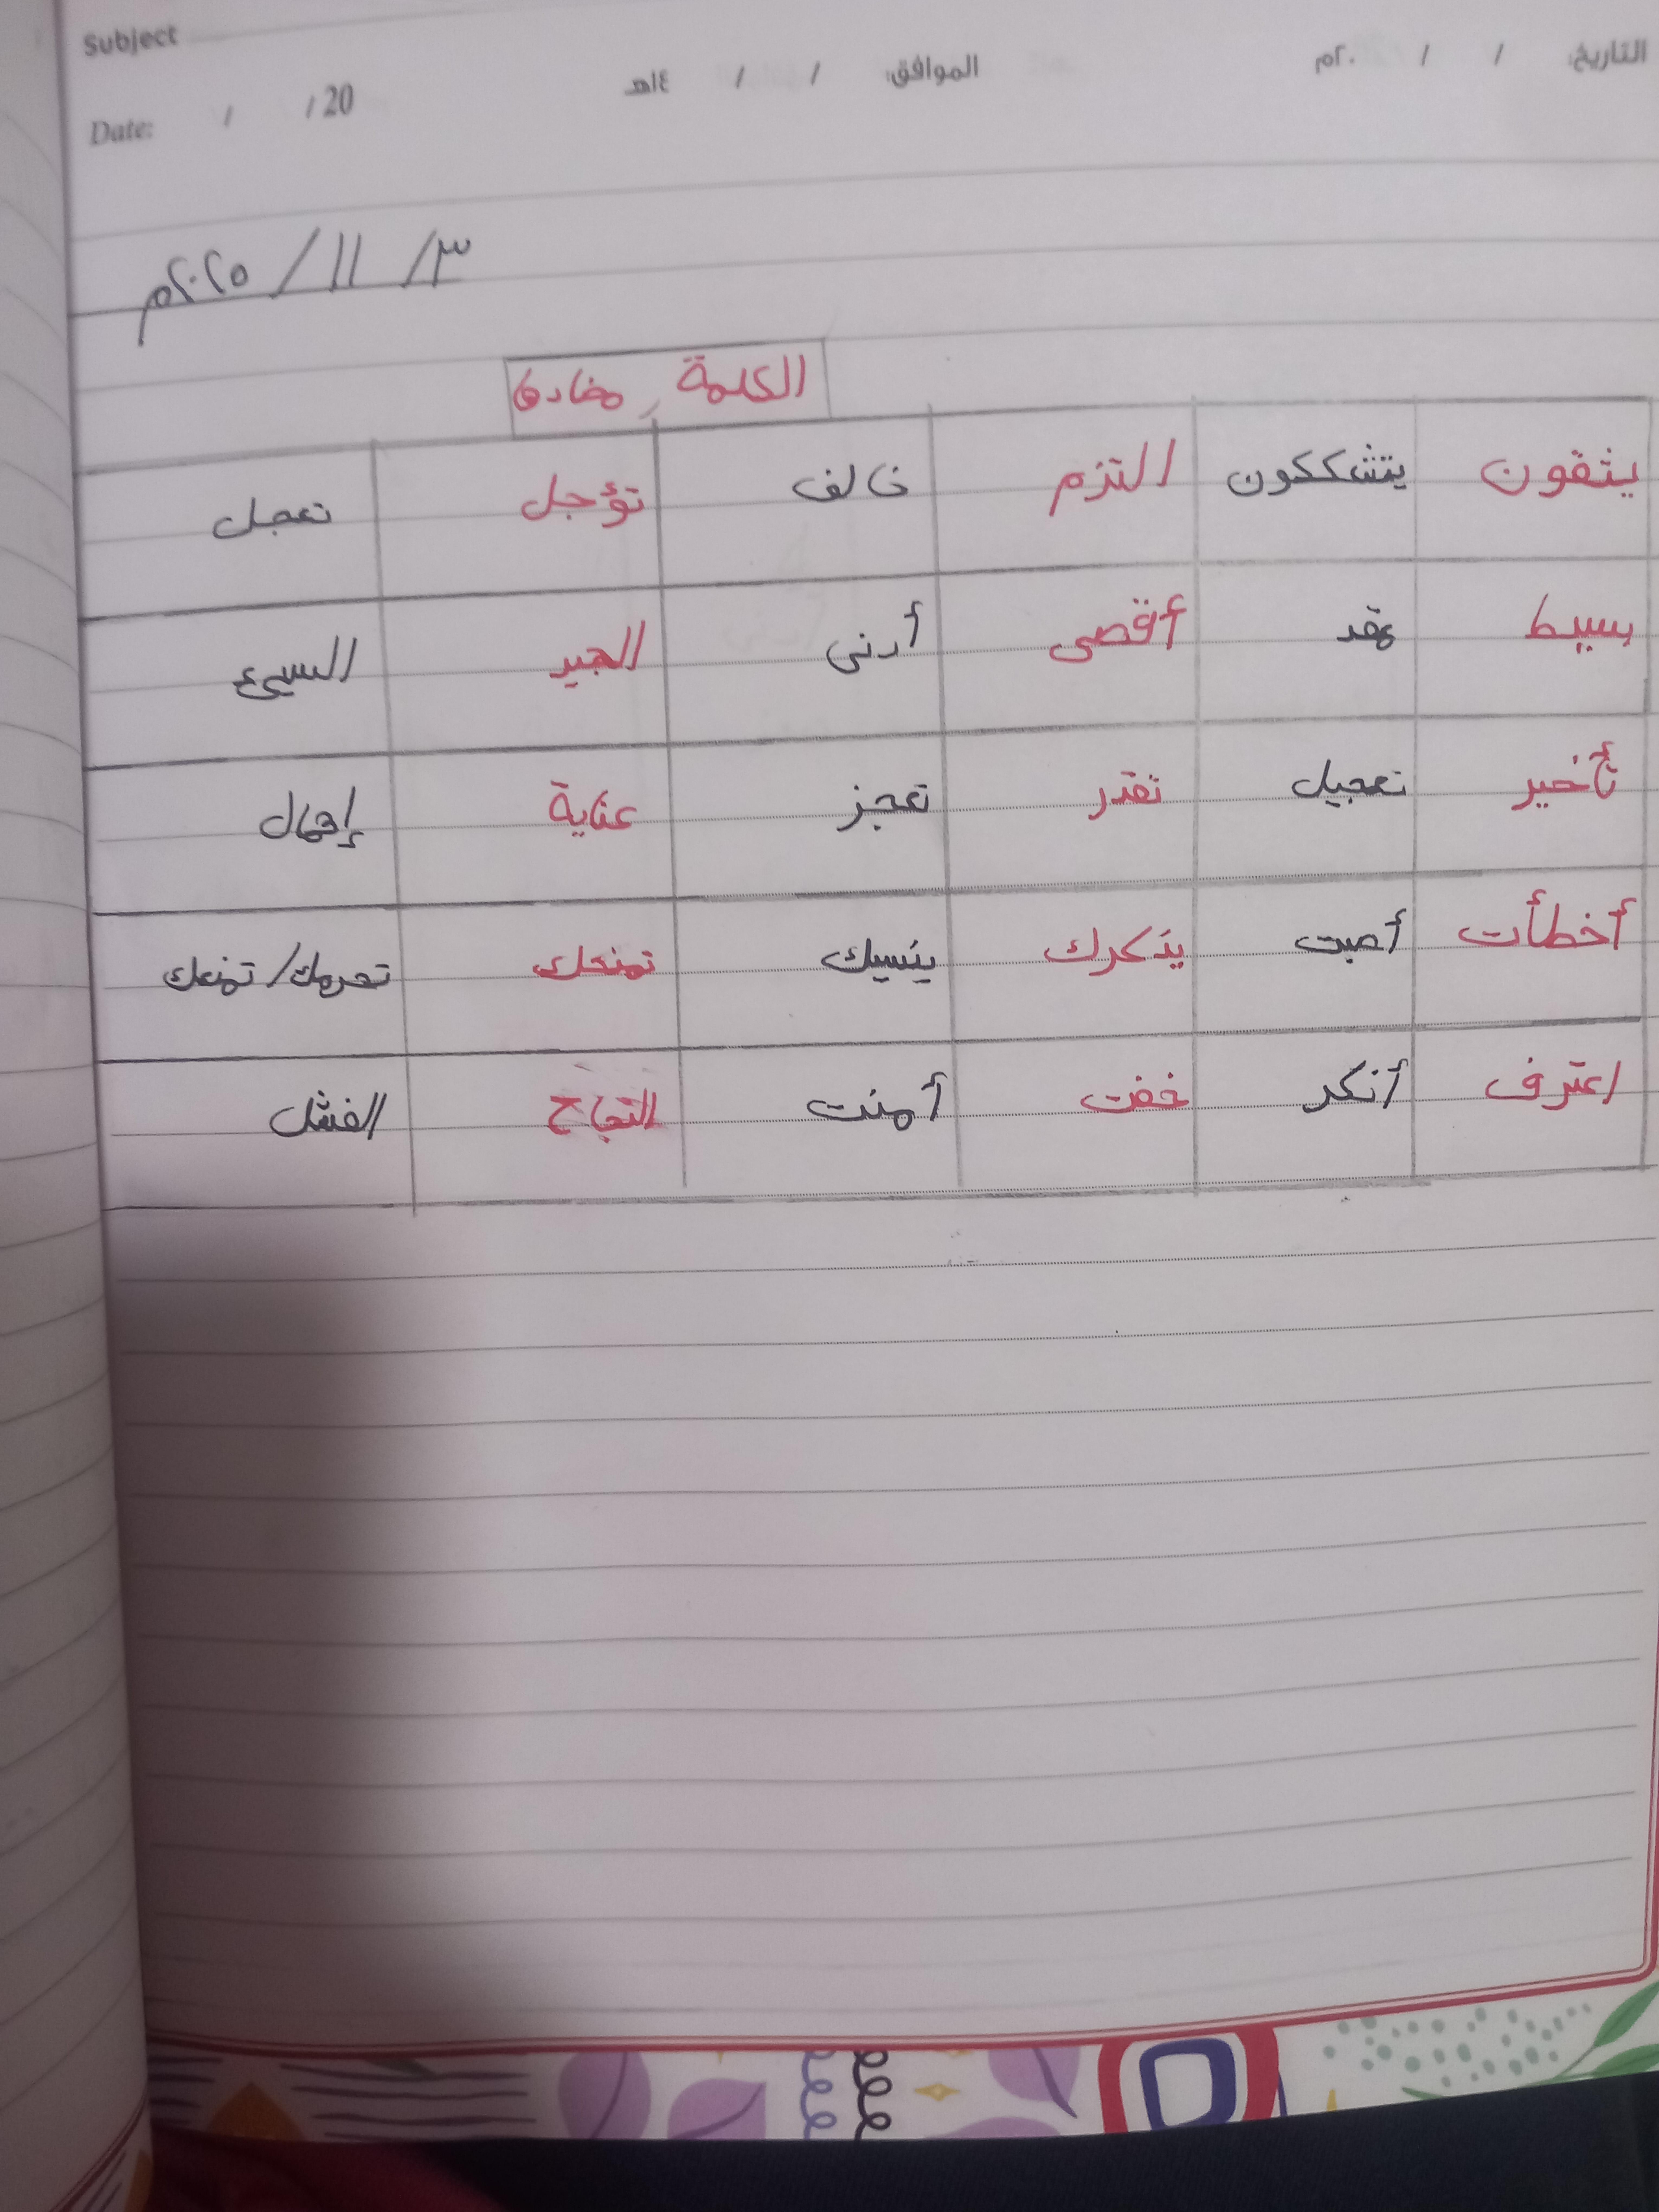 Subject
التاريخ: / / ٢٠م الموافق: / / ١٤هـ
Date: / / 20
٣/ ١١ / ٢٠٢٥م
الكلمة , مضادها
يثقون يتشككون التزم خالف تؤجل تعجل
بسيط عقد أقصى أدنى الجيد السيئ
تأخير تعجيل تقدر تعجز عناية إهمال
أخطأت أصبت يذكرك ينسيك تمنحك تحرمك/ تمنعك
اعترف أنكر خفت أمنت النجاح الفشل